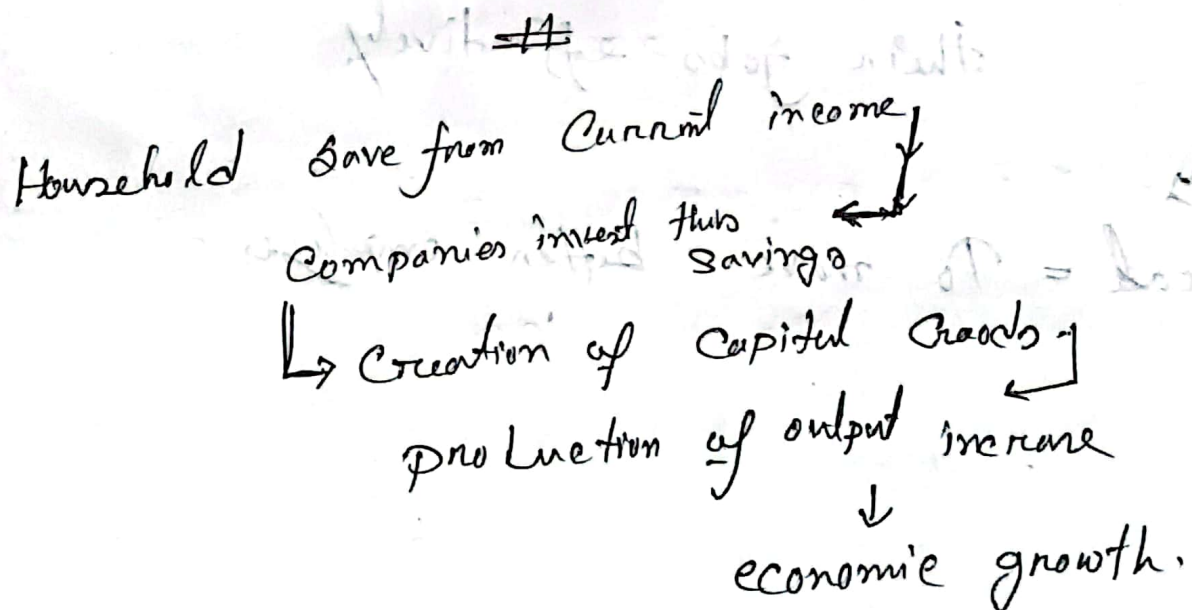 #
Household save from current income
Companies invest this savings
Creation of Capital Goods
production of output increase
economic growth.